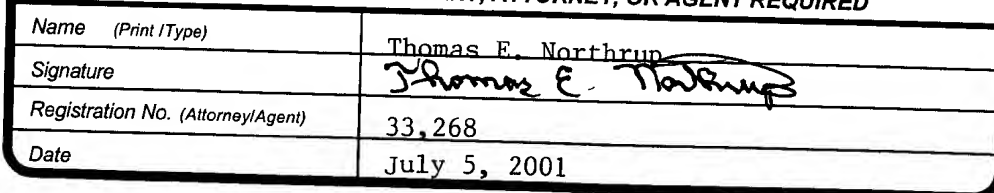 ATTORNEY, OR AGENT REQUIRED
Name (Print /Type) Thomas E. Northrup
Signature Thomas E. Northrup
Registration No. (Attorney/Agent) 33,268
Date July 5, 2001